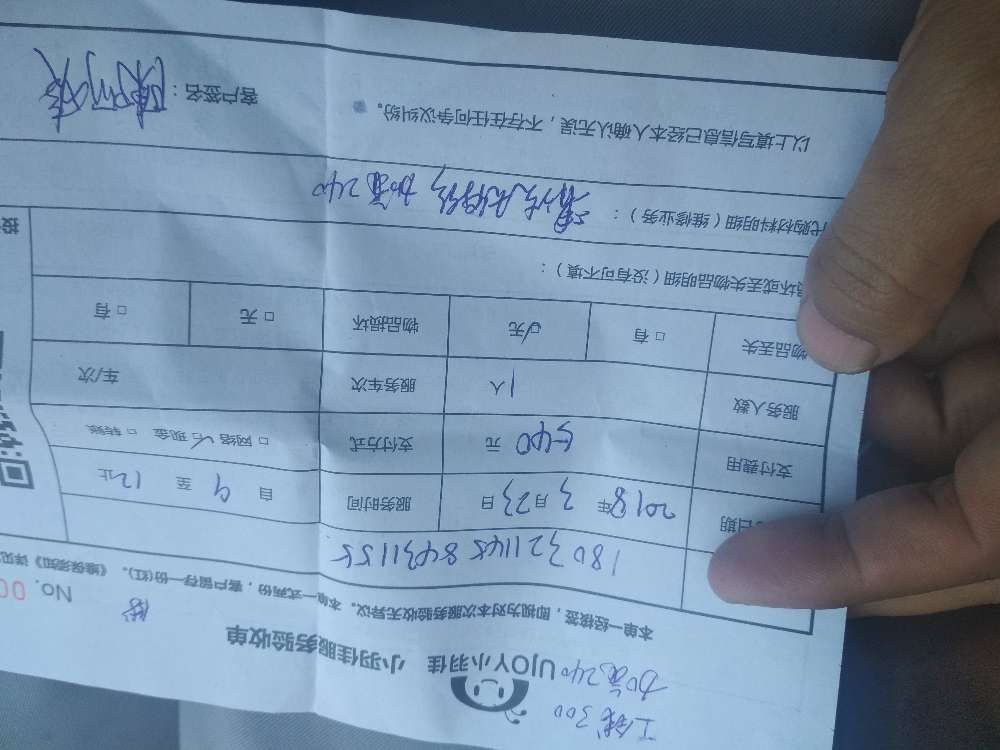 工钱300
加氟240
UJOY小羽佳 小羽佳服务验收单
No. 00
本单一经核签，即视为对本次服务验收无异议。本单一式两份，客户留存一份(红)。《维保须知》详见
18032114584311155
日期 2018年3月23日 服务时间 自9至12止
支付费用 540元 支付方式 □网络 ☑现金 □转账
服务人数 1人 服务车次 车/次
物品丢失 □有 ☑无 物品损坏 □无 □有
坏或丢失物品明细（没有可不填）：
代购材料明细（维修业务）： 加氟240
以上填写信息已经本人确认无误，不存在任何争议纠纷。 客户签名：